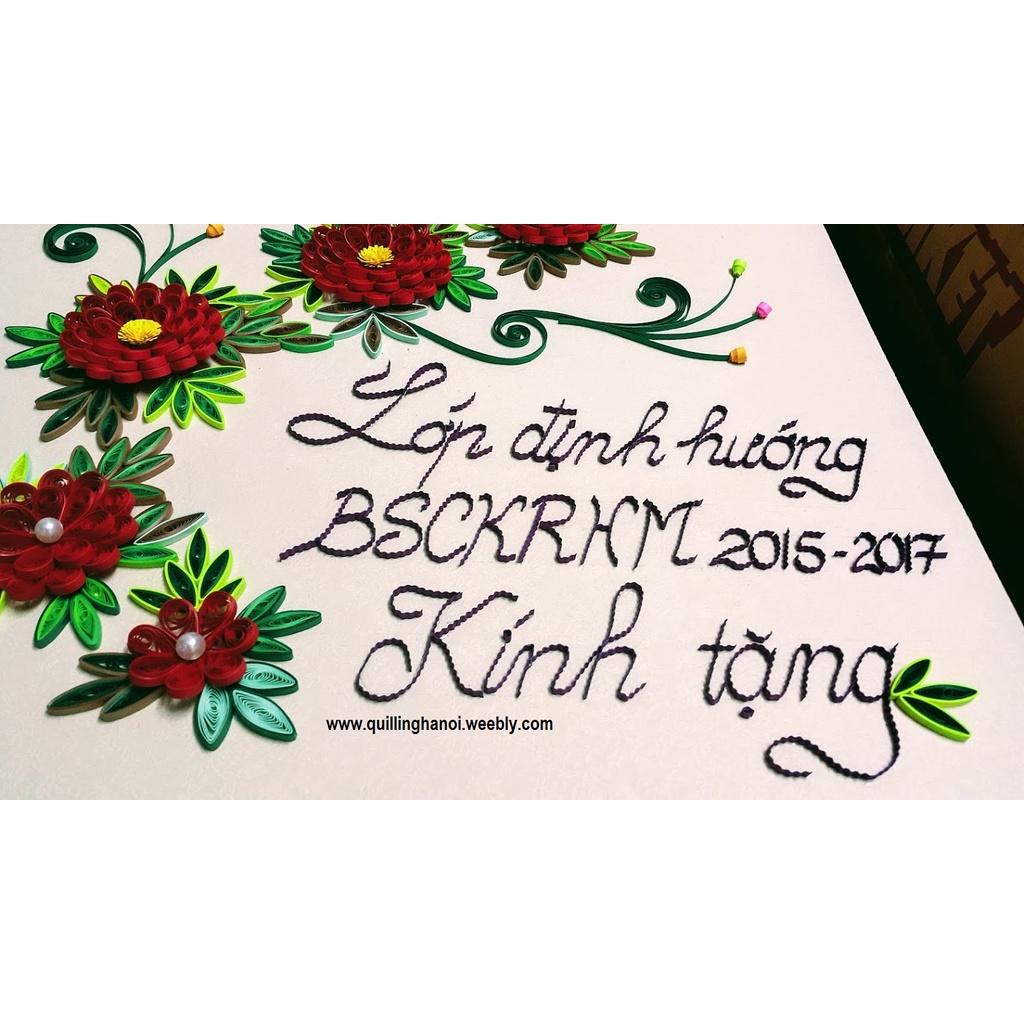 Lớp định hướng
BSCKRHM 2015-2017
Kính tặng
www.quillinghanoi.weebly.com